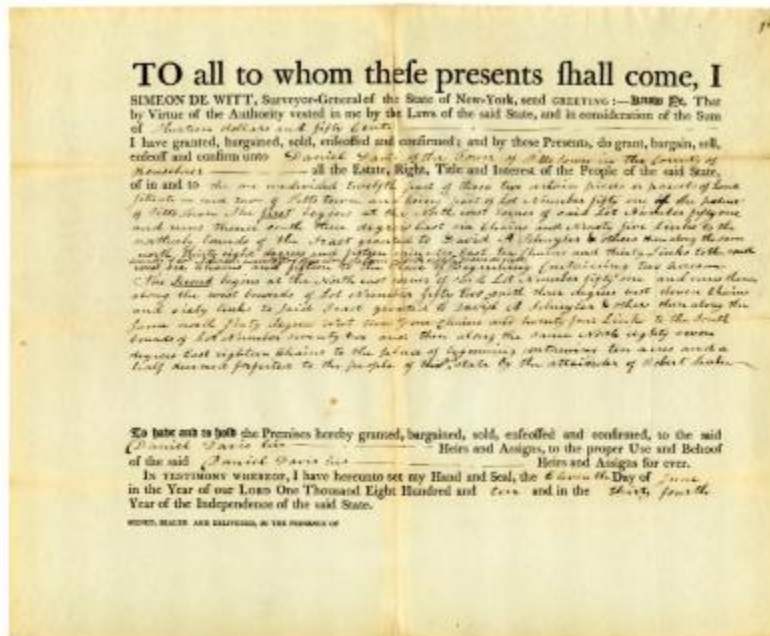 TO all to whom theſe preſents ſhall come, I
SIMEON DE WITT, Surveyor-General of the State of New-York, ſend GREETING:—Know Ye, That
by Virtue of the Authority veſted in me by the Laws of the ſaid State, and in conſideration of the Sum
of thirteen dollars and fifty Cents
I have granted, bargained, ſold, enfeoffed and confirmed; and by theſe Preſents, do grant, bargain, ſell,
enfeoff and confirm unto Daniel Davis of the Town of Pittstown in the County of
Rensselaer all the Eſtate, Right, Title and Intereſt of the People of the ſaid State,
of in and to the one undivided twelfth part of those two certain pieces or parcels of Land
situate in town of Pittstown and being part of Lot Number fifty one of the patent
of Pittstown The first begins at the North west corner of said Lot Number fifty one
and runs thence south three degrees East six Chains and Ninety five Links to the
northerly bounds of the Tract granted to David A Schuyler & others then along the same
north thirty eight degrees and fifteen minutes East ten Chains and thirty Links to the
west six Chains and fifteen to the place of Beginning Containing two acres
The Second begins at the North east corner of said Lot Number fifty one and runs thence
along the west bounds of Lot Number fifty two south three degrees east eleven Chains
and sixty links to said Tract granted to David A Schuyler & others then along the
same north degrees west twenty four Chains and twenty four Links to the South
bounds of Lot Number twenty two and then along the same North eighty seven
degrees East eighteen Chains to the place of beginning containing ten acres and a
half deemed forfeited to the people of this state by the attainder of Robert
To have and to hold the Premiſes hereby granted, bargained, ſold, enfeoffed and confirmed, to the ſaid
Daniel Davis his Heirs and Aſſigns, to the proper Uſe and Behoof
of the ſaid Daniel Davis his Heirs and Aſſigns for ever.
IN TESTIMONY WHEREOF, I have hereunto ſet my Hand and Seal, the Eleventh Day of June
in the Year of our LORD One Thouſand Eight Hundred and ten and in the thirty fourth
Year of the Independence of the ſaid State.
SIGNED, SEALED AND DELIVERED, IN THE PRESENCE OF